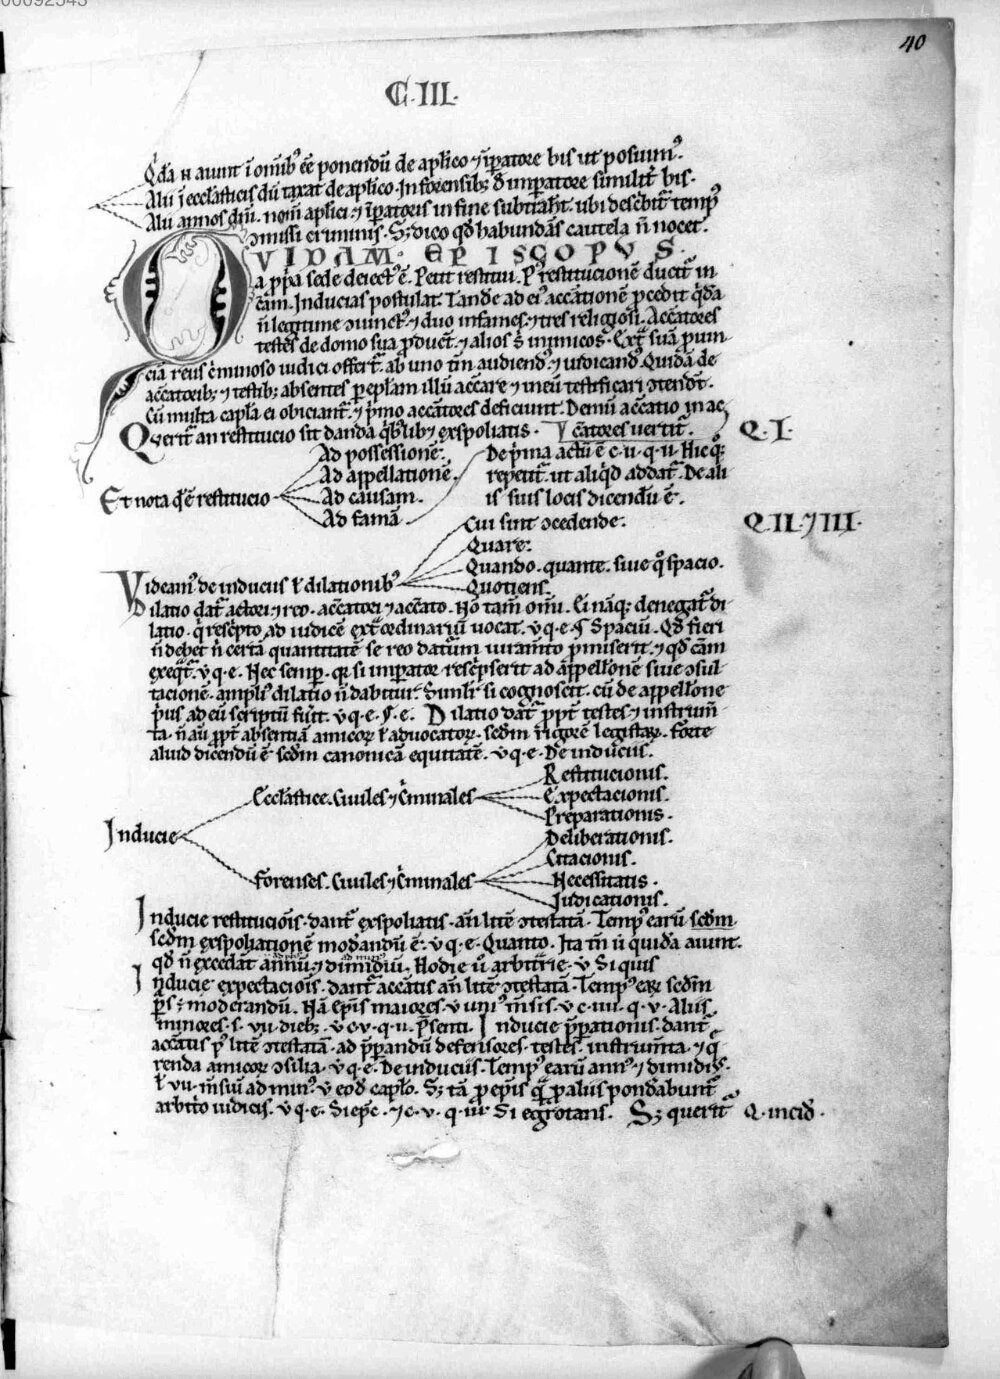 00092343
40
C. III.
Qda n aiunt i omib' ee ponendu de aplico ⁊ ipatore bis ut posuim'.
Alii i ecclasticis du taxat de aplico. In forensib; d imperatore similit bis.
Alii annos dni. nom aplici. ⁊ ipatoris in fine subtraht. ubi describit temp'
ɔmissi criminis. S; dico qd habundans cautela n nocet.
QVIDAM EPISCOPVS
a ppa sede deiect' e. Petit restitui. P' restitucione ducit in
cam. Inducias postulat. Tande ad ei' accatione pcedit qda
n legitime ɔiunct' ⁊ duo infames. ⁊ tres religiosi. Accatores
testes de domo sua pduct. ⁊ alios s inimicos. Ext sua puin
cia reus c'minoso iudici offert. ab uno tm audiend' ⁊ iudicand' Quida de
accatorib; ⁊ testib; absentes p eplam illu accare ⁊ in eu testificari ɔtendt.
Cu multa capla ei obiciant. ⁊ p'mo accatores deficiunt. Demu accatio in ac
Querit an restitucio sit danda qb'lib; exspoliatis. catores uertit. Q. I.
Ad possessione. De p'ma actu e c. ii. q. ii. Hic q;
Ad appellatione. repetit. ut aliqd addat. De ali
Et nota qd e restitucio Ad causam. is suis locis dicendu e.
Ad fama
Cui sint ɔcedende. Q. II. ⁊ III.
Quare.
Quando. quante. siue qo spacio.
Videam' de induciis ł dilationib' Quotiens.
Dilatio dat actori ⁊ reo. accatori ⁊ accato. No tam omi. Ei naq; denegat di
latio. q rescpto ad iudice ext'ordinariu uocat. v. q. e. § Spaciu. Qd fieri
n debet n certa quantitate se reo datum iuramto p'miserit. ⁊ qd cam
exeqt. v. q. e. Nec semp. qr si imperator rescpserit ad appellone siue ɔsul
tacione. ampli' dilatio n dabitur. Simlr si cognoscit. cu de appellone
pus ad eu scriptu fuit. v. q. e. §. e. Dilatio dat ppt testes ⁊ instrum
ta. n au ppt absentia amicor ł aduocator. sedm rigore legistar. forte
aliud dicendu e sedm canonica equitate. v. q. e. De induciis.
Restitucionis.
Ecclastice. Ciuiles ⁊ c'minales Expectacionis.
Preparationis.
Inducie Deliberationis.
Citacionis.
Forenses. Ciuiles ⁊ c'minales Necessitatis.
Judicationis.
Inducie restitucois. dant exspoliatis. an lite ɔtestata. Temp' earu sedm
sedm exspoliatione mod'andu e. v. q. e. Quanto. Ita tn ut quida aiunt.
qd n excedat annu. ⁊ dimidiu. Hodie u arbitrie. v. Si quis
Inducie expectacois. dant accatis an lite ɔtestata. Temp' ear sedm
ps moderandu. Na epis maiores. v uni' msis. v. c. iiii. q. v. Aliis
minores. s. vii. dieb;. v. c. v. q. ii. Psenti. Inducie ppationis. dant
accatis p' lite ɔtestata. ad ppandu defensores. testes. instrumta. ⁊ q
renda amicor ɔsilia. v. q. e. De induciis. Temp' earu ann' ⁊ dimidi'.
ł vii. msiu ad min'. v. eod caplo. S; ta p epis q p aliis pondabunt
arbitio iudicis. v. q. e. Si epc. ⁊ c. v. q. iii. Si egrotans. S; querit Q. incid.